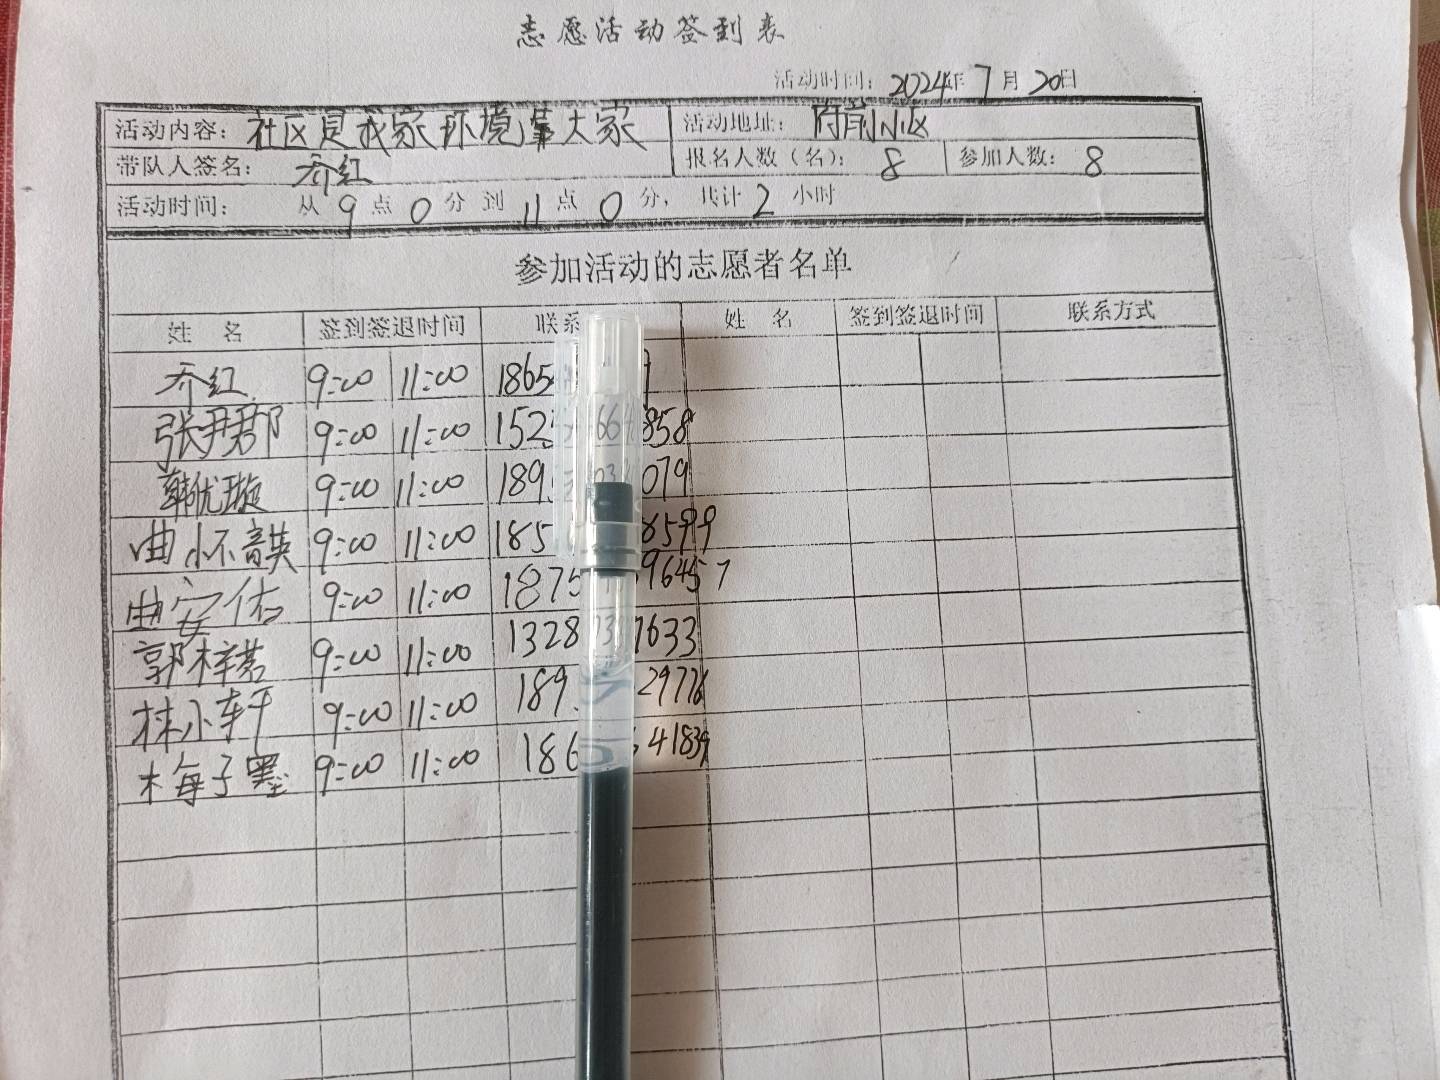 志愿活动签到表
活动时间：2024年7月20日
活动内容：社区是我家环境靠大家 活动地址：府前小区
带队人签名：乔红 报名人数（名）：8 参加人数：8
活动时间：从9点0分到11点0分，共计2小时
参加活动的志愿者名单
姓名 签到签退时间 联系 姓名 签到签退时间 联系方式
乔红 9:00 11:00 1865
张尹郡 9:00 11:00 152 664 858
韩优璇 9:00 11:00 189 03 079
曲 9:00 11:00 185 8599
曲安佑 9:00 11:00 1875 96457
郭梓茗 9:00 11:00 1328 73 7633
林小轩 9:00 11:00 189 29776
梅子墨 9:00 11:00 186 41839